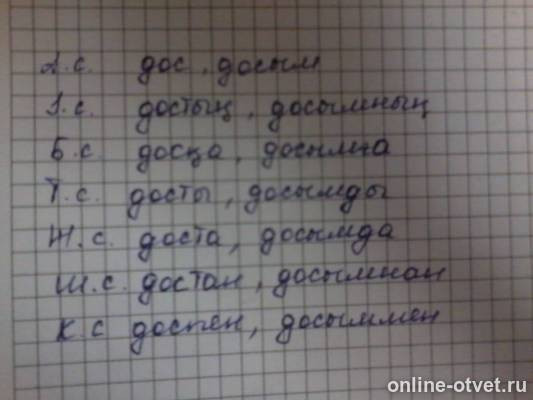 А.с. дос, досым
І.с. достың, досымның
Б.с. досқа, досыма
Т.с. досты, досымды
Ж.с. доста, досымда
Ш.с. достан, досымнан
К.с доспен, досыммен
online-otvet.ru